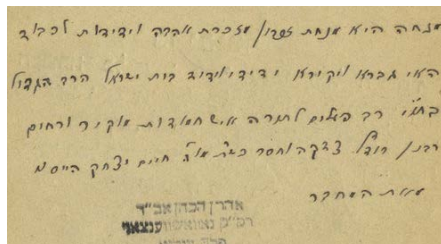 מנחה היא מנחת זכרון מזכרת אהבה וידידות לכבוד
האי גברא ויקירא ידידי וידיד בית ישראל הרב הגדול
רב פעלים לתורה איש חמודות מוקיר ורחים
רבנן רודף צדקה וחסד כש"ת מו"ה חיים יצחק
מאת המחבר
אהרן הכהן אב"ד